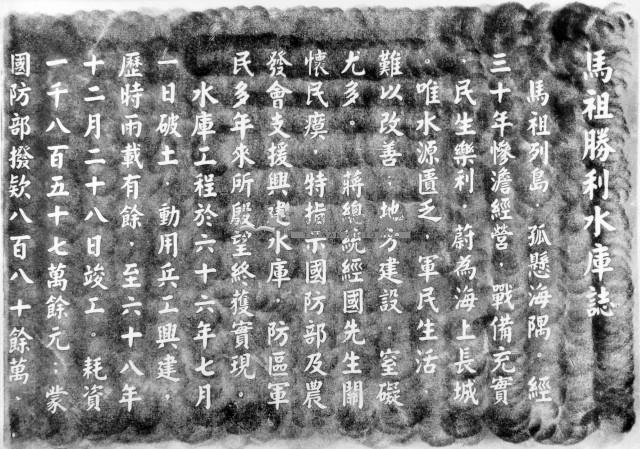 馬祖勝利水庫誌
馬祖列島．孤懸海隅．經
三十年慘澹經營．戰備充實
．民生樂利．蔚為海上長城
。唯水源匱乏．軍民生活．
難以改善．地方建設．窒礙
尤多。　蔣總統經國先生關
懷民瘼．特指示國防部及農
發會支援興建水庫．防區軍
民多年來所殷望終獲實現。
水庫工程於六十六年七月
一日破土．動用兵工興建．
歷時兩載有餘．至六十八年
十二月二十八日竣工。耗資
一千八百五十七萬餘元：蒙
國防部撥欵八百八十餘萬．